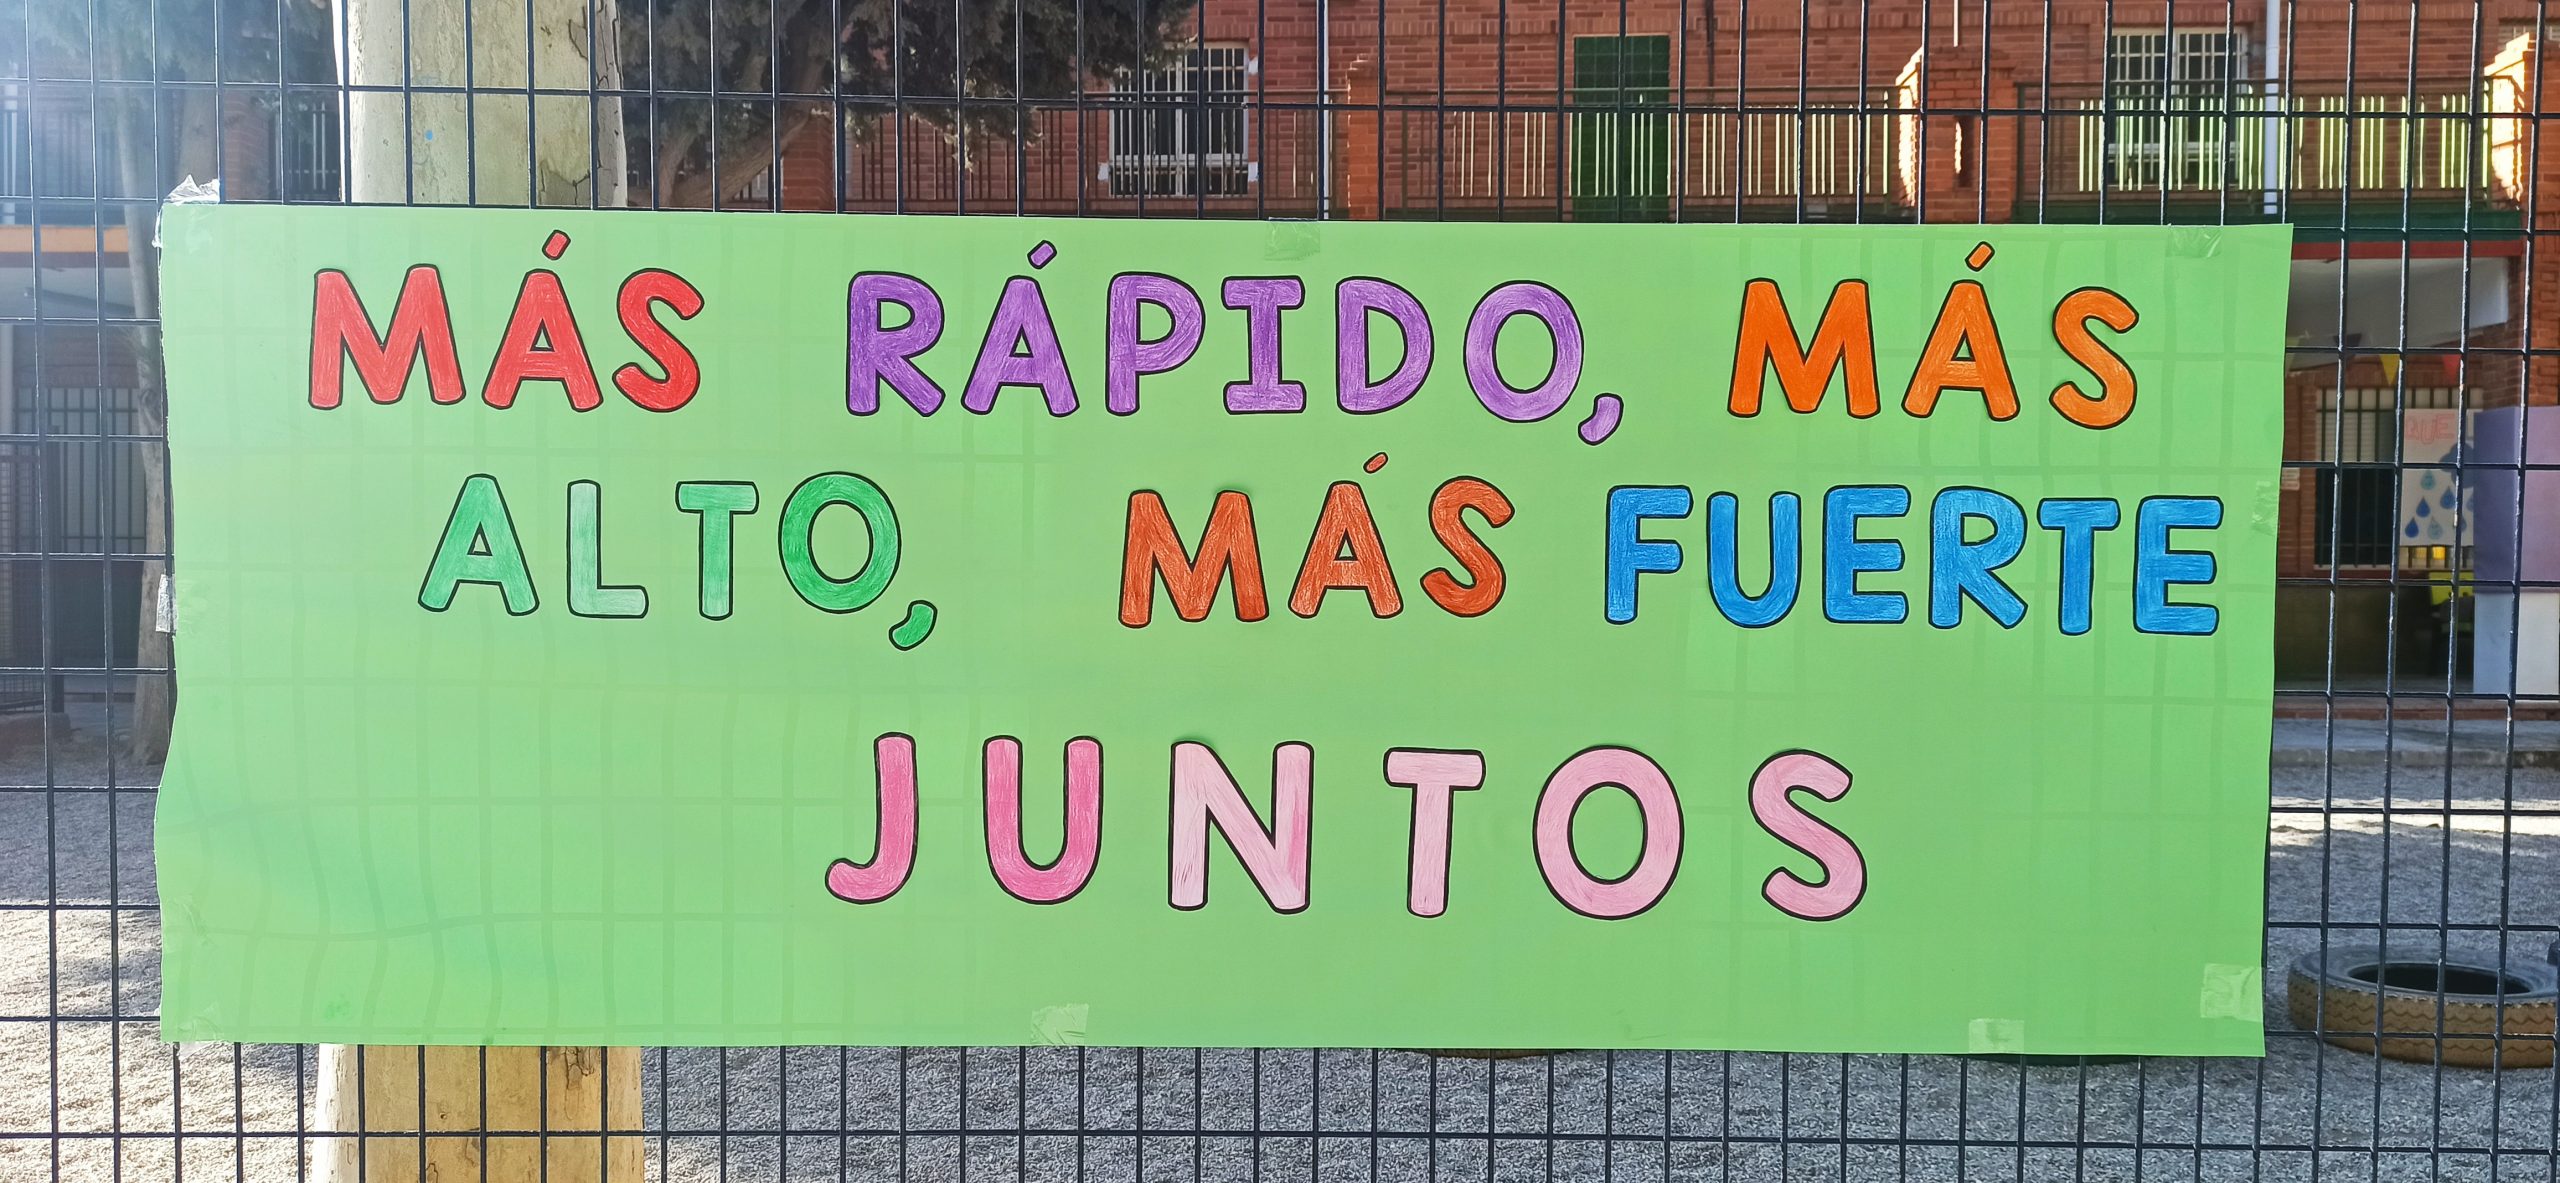 MÁS RÁPIDO, MÁS
ALTO, MÁS FUERTE
JUNTOS
QUE